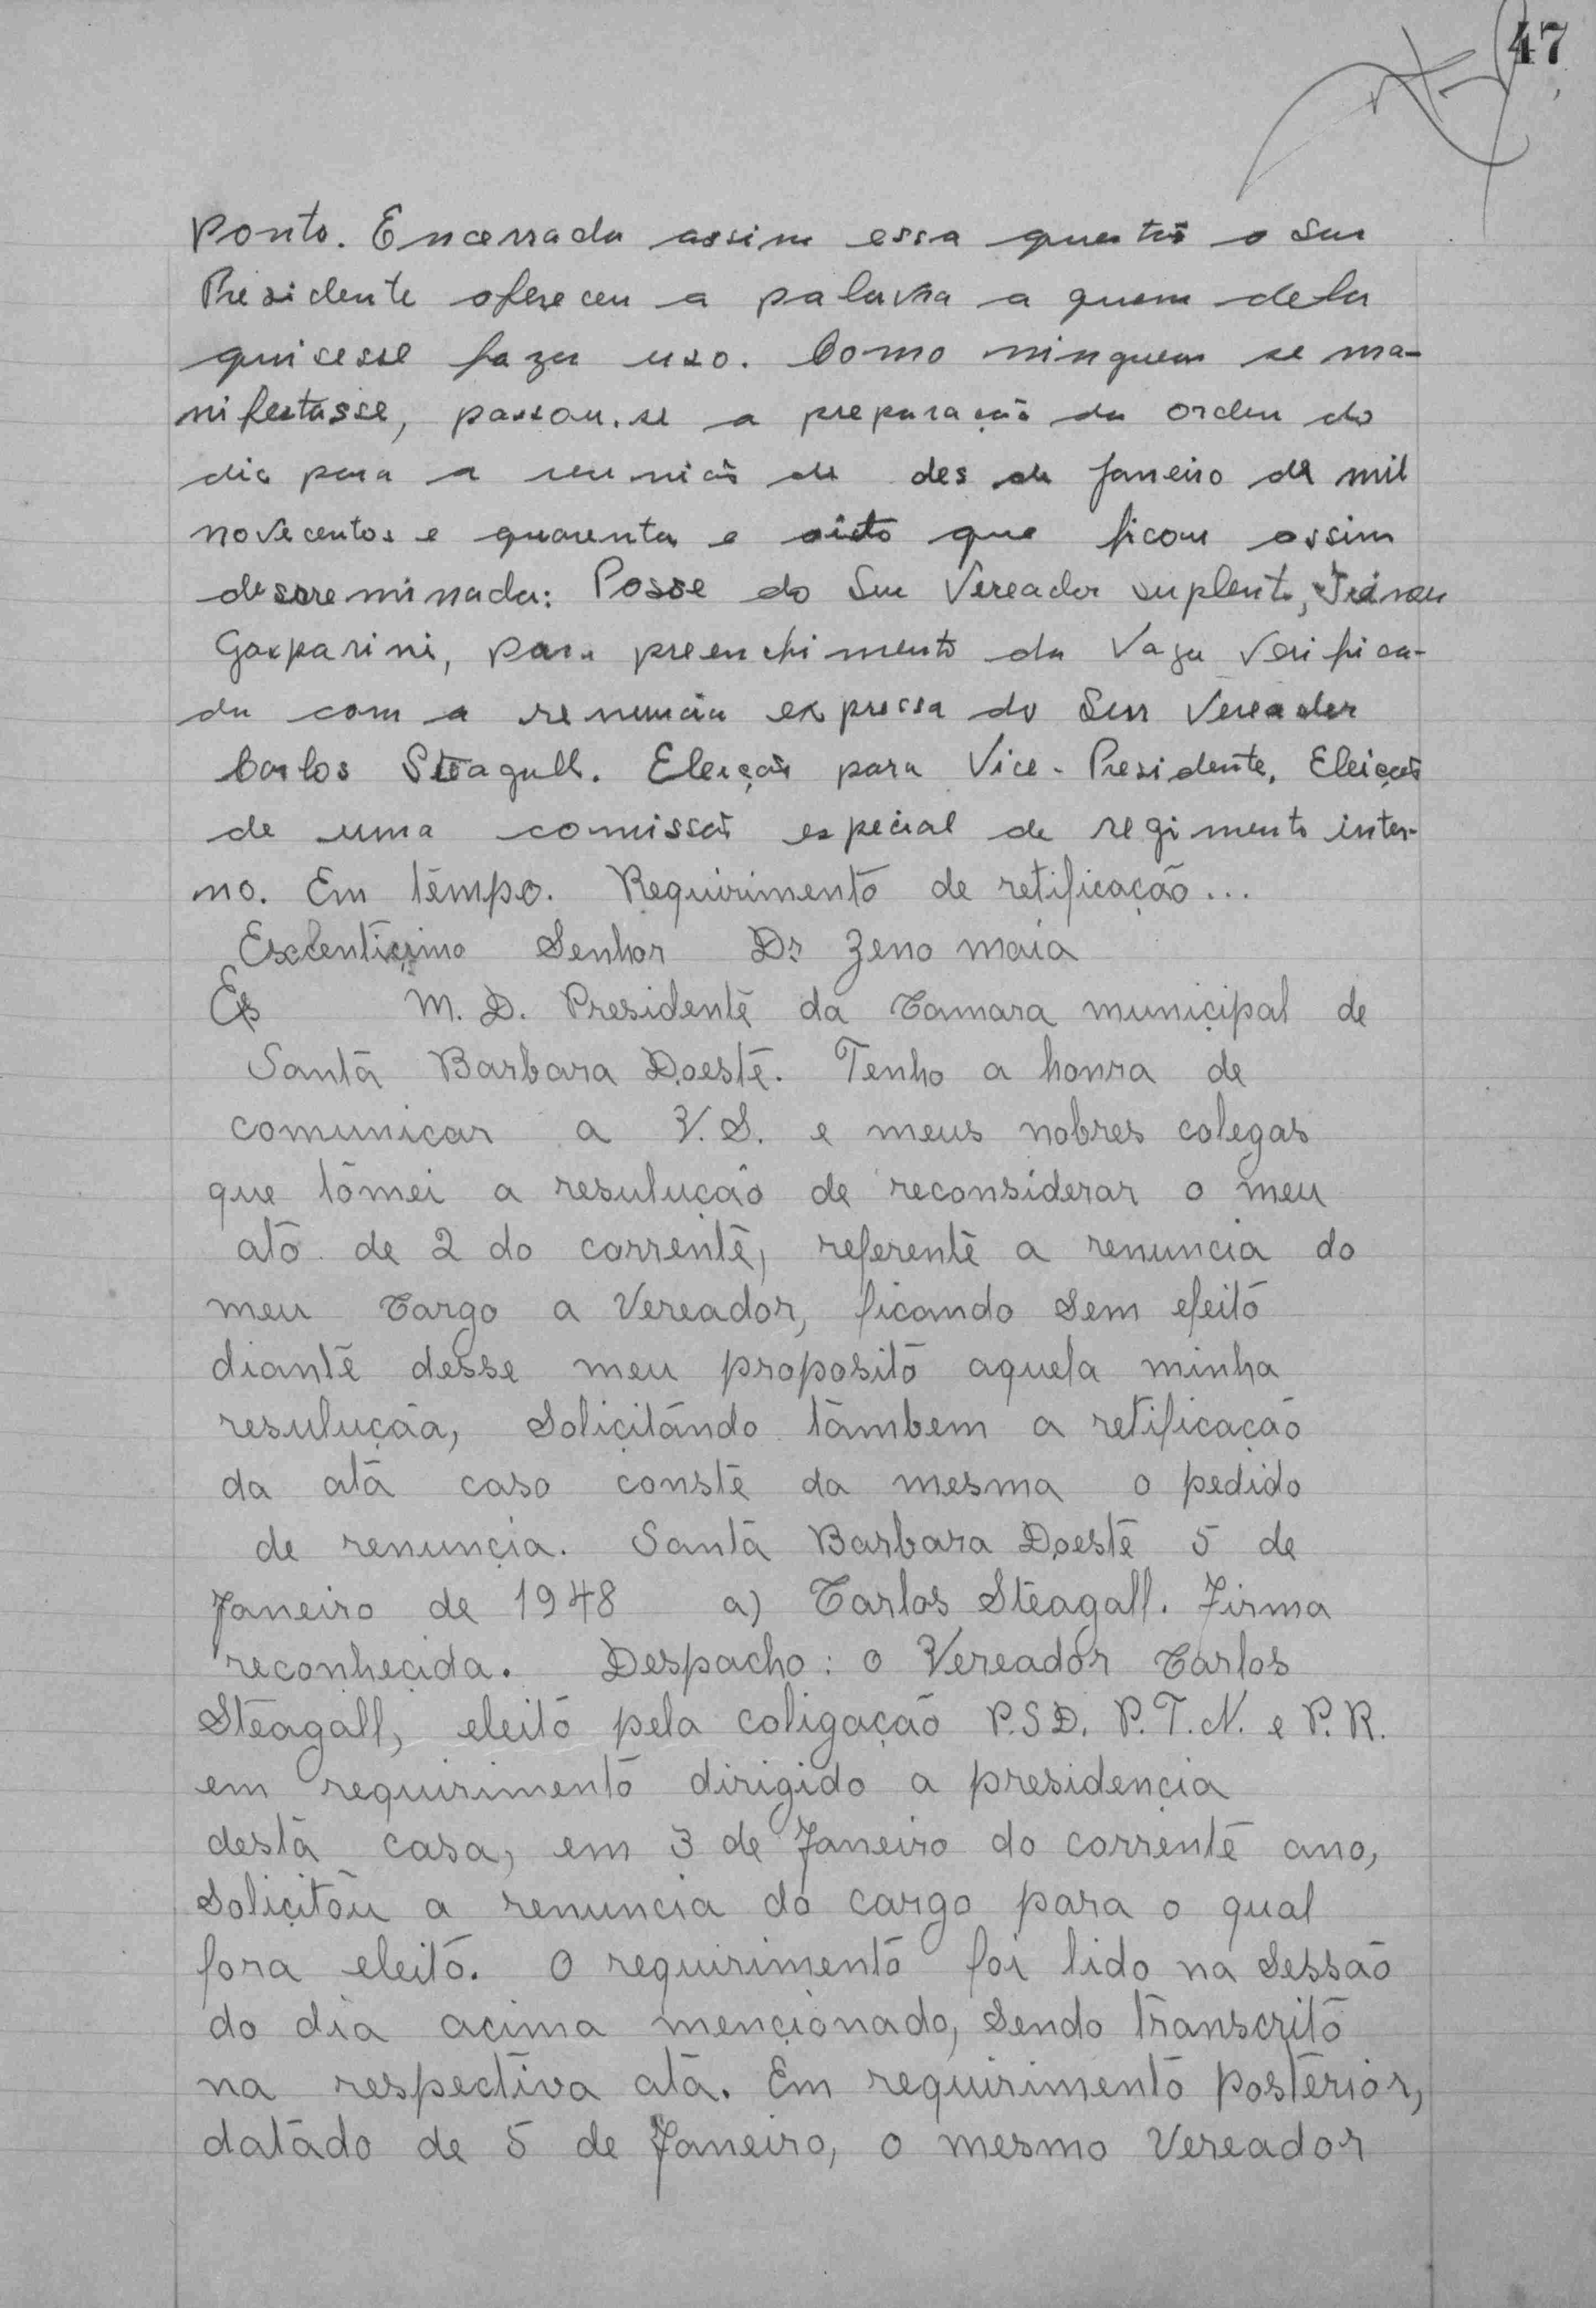 47
ponto. Encerrada assim essa questão o Snr
Presidente ofereceu a palavra a quem dela
quisesse fazer uso. Como ninguem se ma-
nifestasse, passou-se a preparação da ordem do
dia para a reunião de des de Janeiro de mil
novecentos e quarenta e oito que ficou assim
descreminada: Posse do Snr Vereador suplente, Irineu
Gasparini, para preenchimento da Vaga verifica-
da com a renuncia expressa do Snr Vereador
Carlos Steagall. Eleição para Vice-Presidente. Eleição
de uma comissão especial de regimento inter-
no. Em tempo. Requirimento de retificação...
Exclentissimo Senhor Dr Zeno maia
M. D. Presidente da Camara municipal de
Santa Barbara Doeste. Tenho a honra de
comunicar a V. S. e meus nobres colegas
que tomei a resulução de reconsiderar o meu
ato de 2 do corrente, referente a renuncia do
meu Cargo a Vereador, ficando Sem efeito
diante desse meu proposito aquela minha
resulução, Solicitando tambem a retificação
da ata caso conste da mesma o pedido
de renuncia. Santa Barbara Doeste 5 de
Janeiro de 1948 a) Carlos Steagall. Firma
reconhecida. Despacho: o Vereador Carlos
Steagall, eleito pela coligação P.S.D. P.T.N. e P.R.
em requirimento dirigido a presidencia
desta casa, em 3 de Janeiro do corrente ano,
Solicitou a renuncia do cargo para o qual
fora eleito. O requirimento foi lido na Sessão
do dia acima mencionado, Sendo transcrito
na respectiva ata. Em requirimento posterior,
datado de 5 de Janeiro, o mesmo Vereador